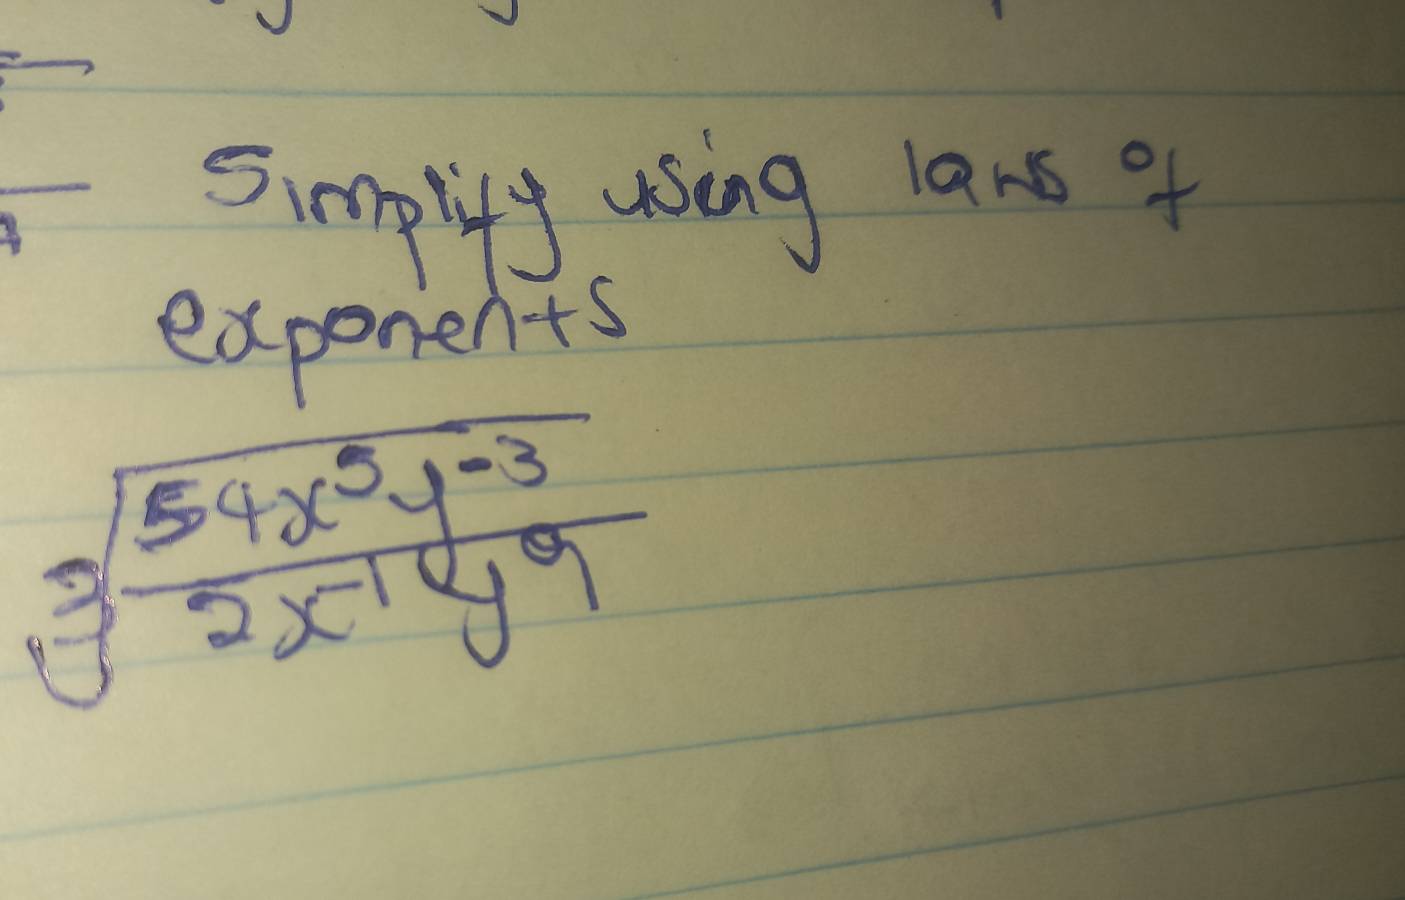 Simplify using laws of
exponents
∛(54x⁵y⁻³ / 2x⁻¹y⁹)